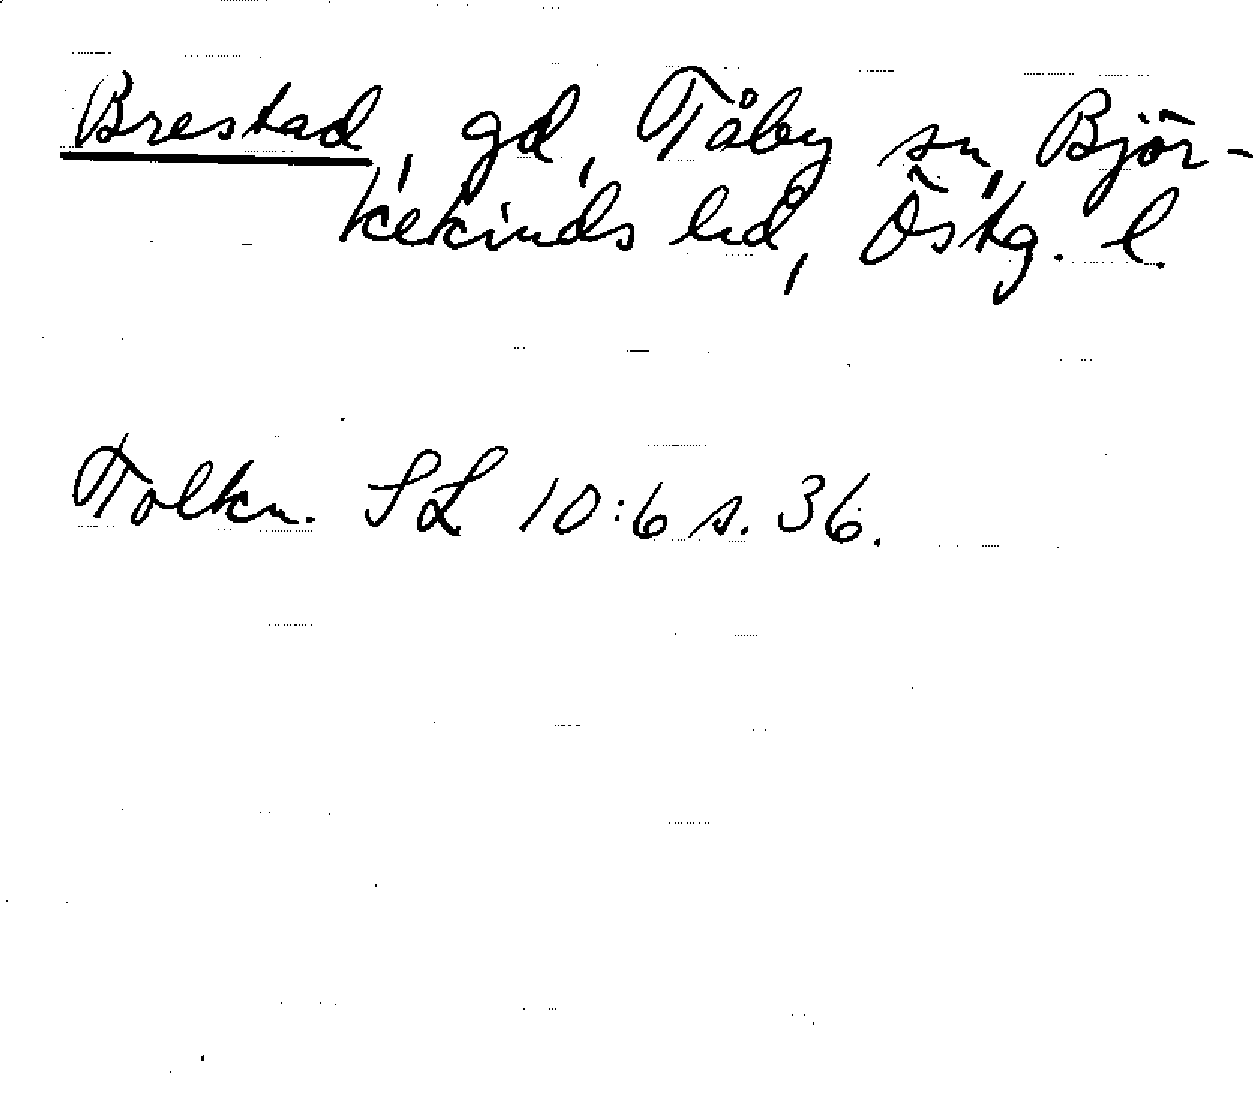 Brestad, gd, Tåby sn, Björ-
kekinds hd, Östg. l.
Tolkn. SL 10:6 s. 36.